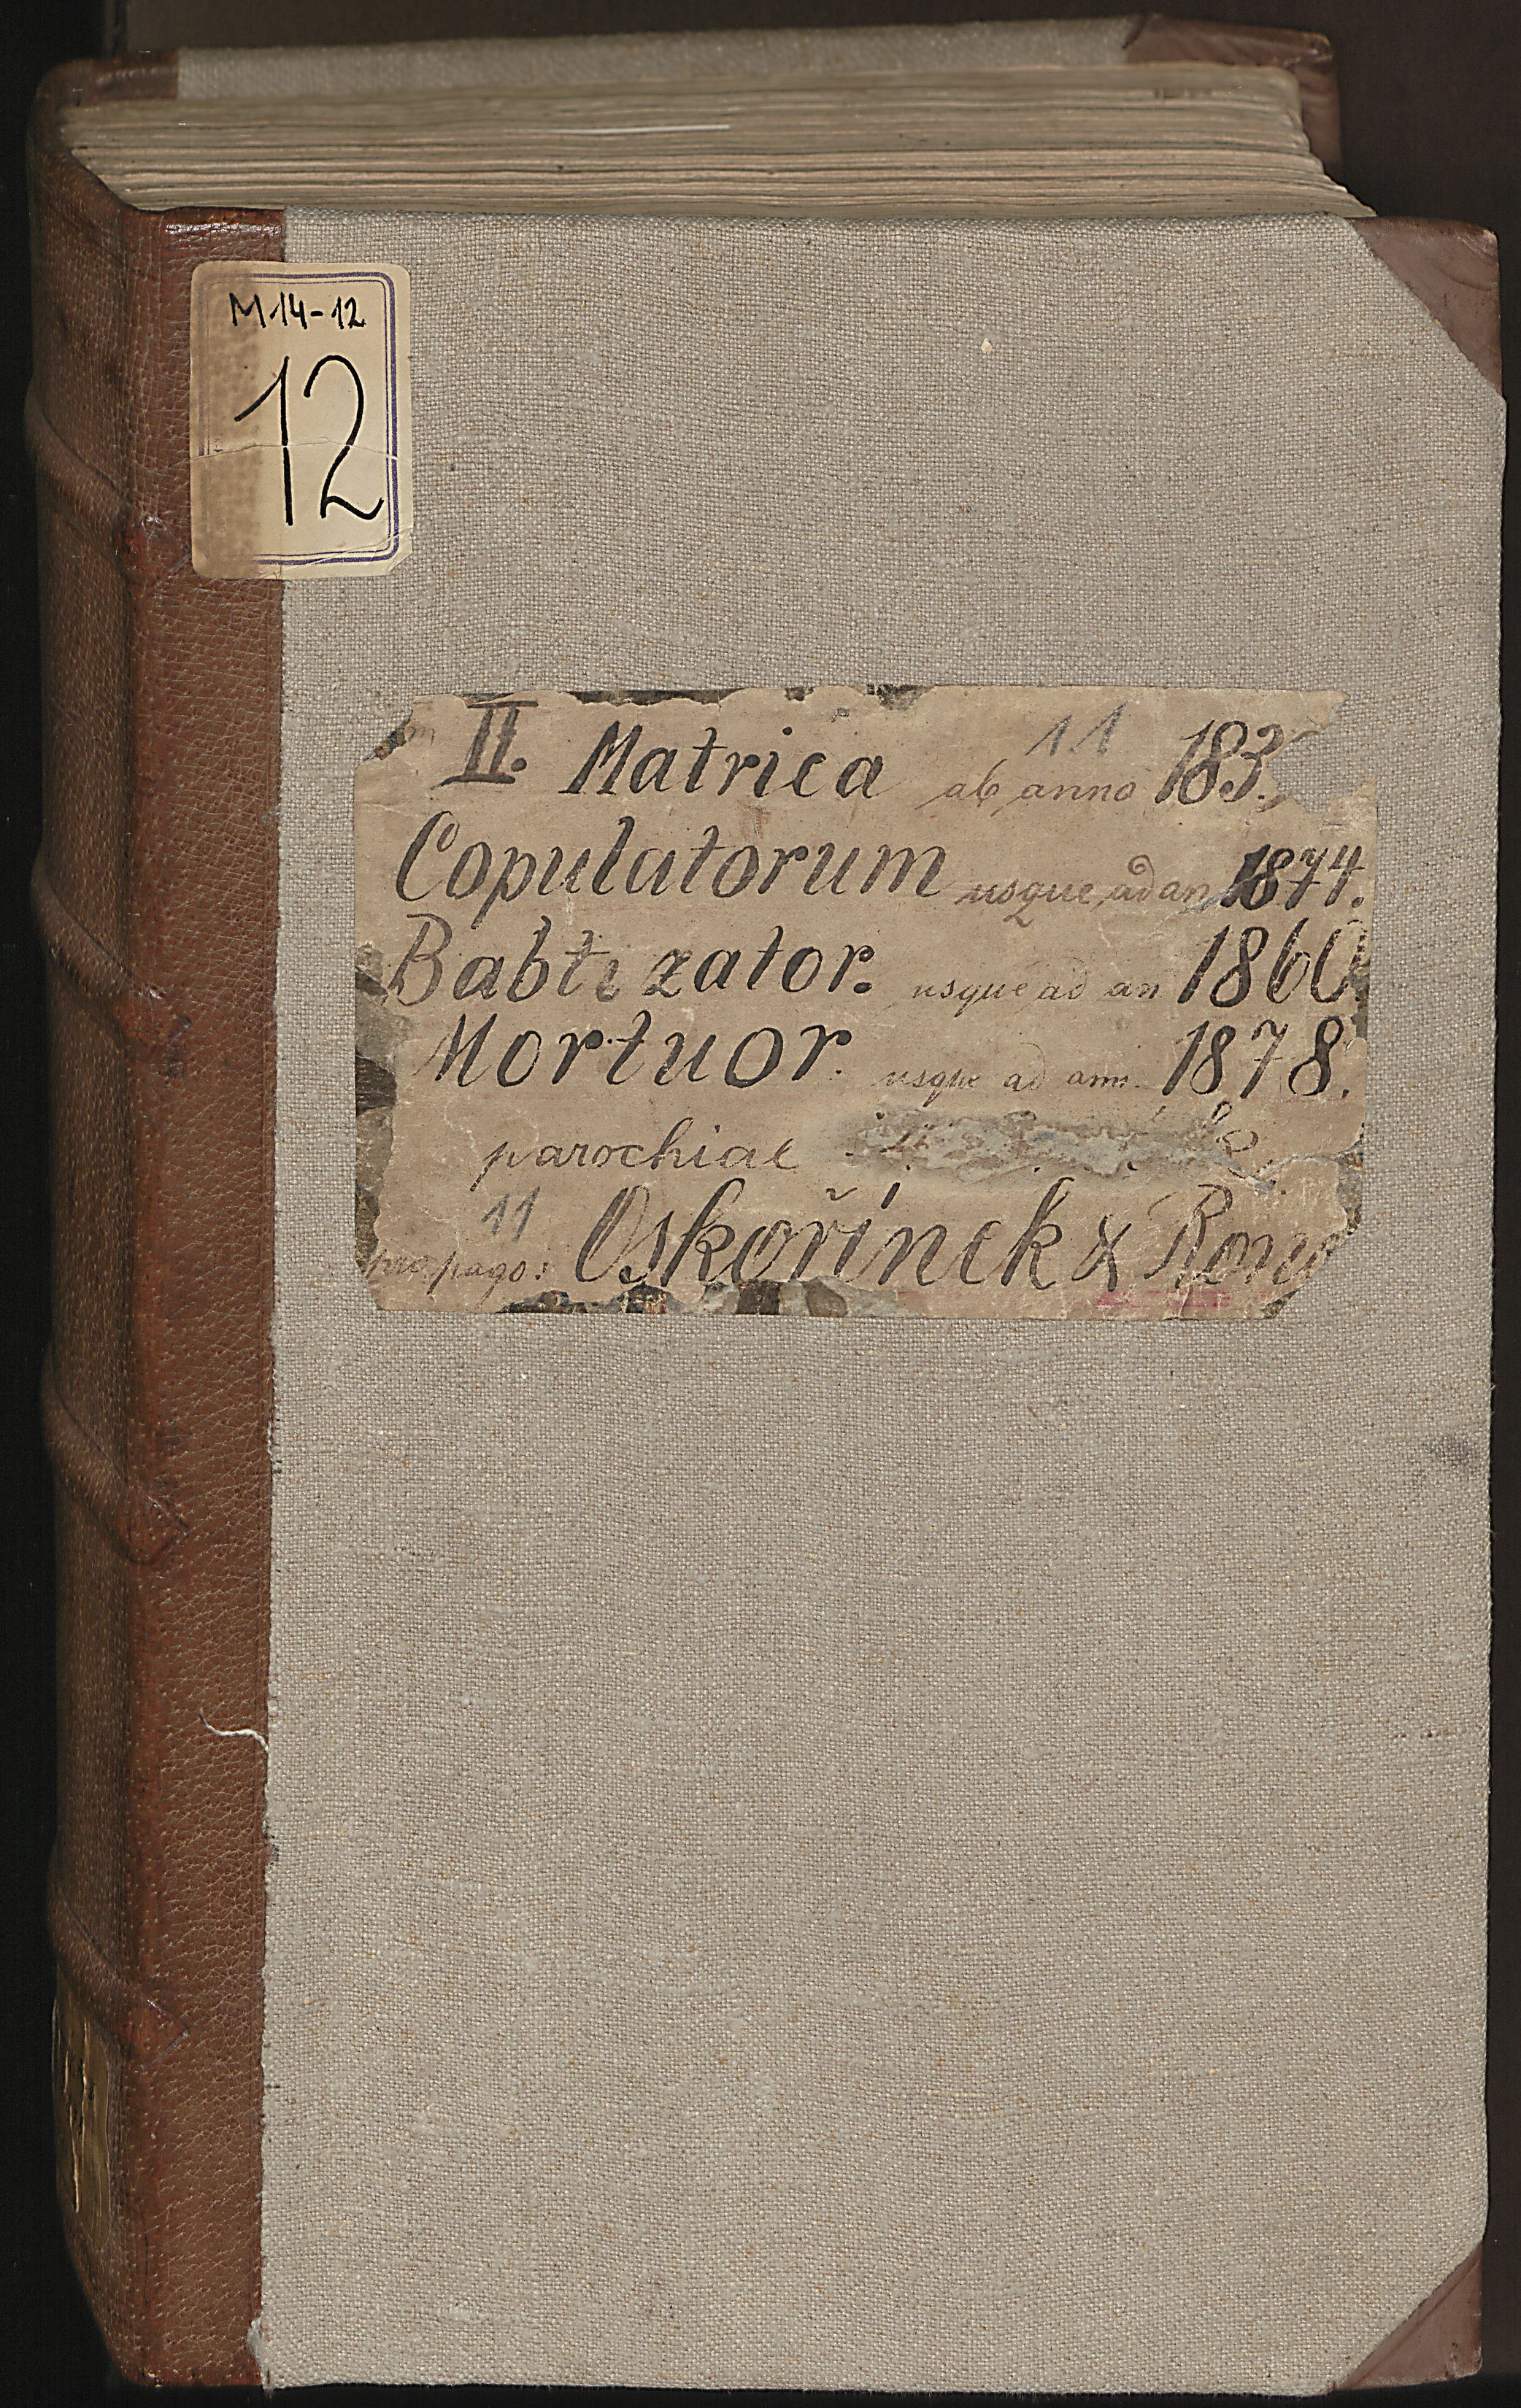 M 14-12
12
11
II. Matrica ab anno 183
Copulatorum usque ad an 1874.
Babtizator. usque ad an 1860
Mortuor. usque ad ann. 1878.
parochiae
11
pro pago: Oskořínek &